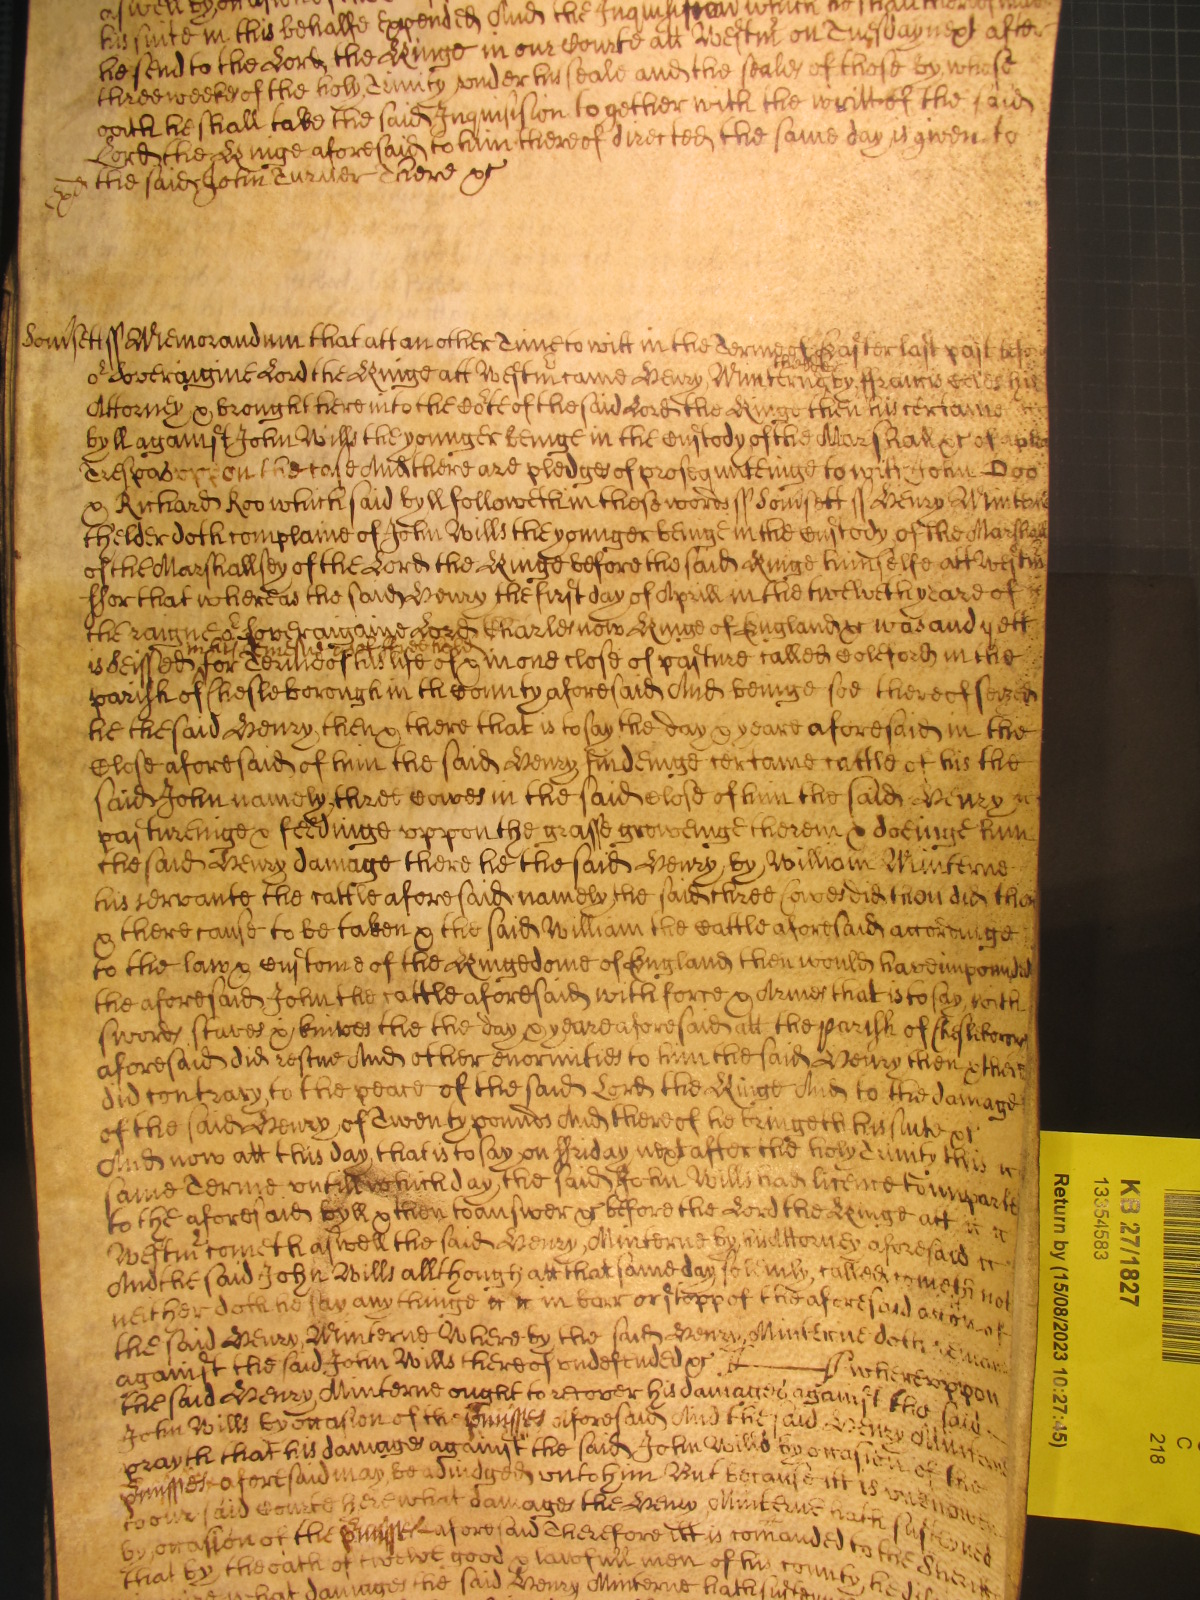 aswell by occasion
his suite in this behalfe expended And the Inquisicion which he shall thereof make
he send to the Lord the Kinge in our Courte att Westm̃ on Tuesday next after
three weekes of the holy Trinity vnder his seale and the seales of those by whose
oath he shall take the said Inquisision together with the writt of the said
Lord the Kinge aforesaid to him thereof directed the same day is given to
the said John Turner There &c
Somsett ss Memorandum that att an other Time to witt in the Terme of Easter last past before
or Soveraigine Lord the Kinge att Westm̃ came Henry Minterne thelder by Francis Eeles his
Attorney & brought here into the Corte of the said Lord the Kinge then his certaine
byll against John Wills the younger beinge in the Custody of the Marshall &c of a plea
Trespas vppon the case And there are pledges of prosequuteinge to witt John Doo
& Richard Roo which said byll followeth in these wordes ss Somsett ss Henry Minterne
thelder doth complaine of John Wills the younger beinge in the Custody of the Marshall
of the Marshallsey of the Lord the Kinge before the said Kinge himselfe att Westm̃
ffor that whereas the said Henry the first day of Aprill in the twelveth yeare of
the raigne or Soveraigaine Lord Charles now Kinge of England &c was and yett
is Seissed in his demesne as of freehold for Terme of his life of & in one close of pasture called Coleford in the
parish of Chesleborough in the County aforesaid And beinge soe thereof seized
he the said Henry then & there that is to say the day & yeare aforesaid in the
Close aforesaid of him the said Henry findeinge certaine cattle of his the
said John namely three Cowes in the said Close of him the said Henry
pastureinge & feedinge vppon the grasse groweinge therein & doeinge him
the said Henry damage there he the said Henry by William Minterne
his servante the cattle aforesaid namely the said three Cowes did then did then
& there cause to be taken & the said William the Cattle aforesaid accordinge
to the law & Custome of the Kingedome of England then would have impounded
the aforesaid John the cattle aforesaid with force & Armes that is to say with
swords staves & knives the the day & yeare aforesaid att the parish of Chesleborough
aforesaid did rescue And other enormities to him the said Henry then & there
did contrary to the peace of the said Lord the Kinge And to the damage
of the said Henry of Twenty pounds And thereof he bringeth his suite &c
And now att this day that is to say on ffriday next after the holy Trinity this
same Terme vntill which day the said John Wills had licence to imparle
to the aforesaid byll & then to answer &c before the Lord the Kinge att
Westm̃ cometh aswell the said Henry Minterne by his Attorney aforesaid
And the said John Wills allthough att that same day solemly called cometh not
neither doth he say any thinge in barr or stopp of the aforesaid accion of
the said Henry Minterne Whereby the said Henry Minterne doth remaine
against the said John Wills thereof vndefended &c Whereuppon
the said Henry Minterne ought to recover his damages against the said
John Wills by occasion of the p̃misses aforesaid And the said Henry Minterne
prayth that his damages against the said John Wills by occasion of the
p̃misses aforesaid may be adjudged vnto him But because itt is vnknowne
to our said Courte here what damages the Henry Minterne hath susteyned
by occasion of the p̃misses aforesaid Therefore itt is com̃anded to the Sheriffe
that by the oath of twelve good & lawfull men of his county he
what damages the said Henry Minterne hath susteyned
KB 27/1827
13354583
Return by (15/08/2023 10:27:45)
C
218